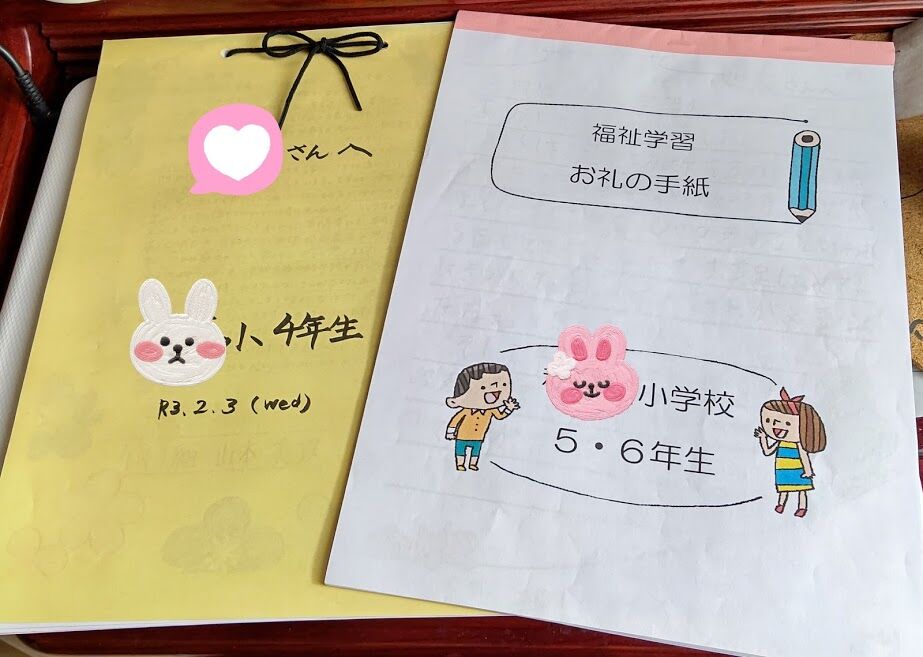 さんへ
小 4年生
R3.2.3 (wed)
福祉学習
お礼の手紙
小学校
5・6年生